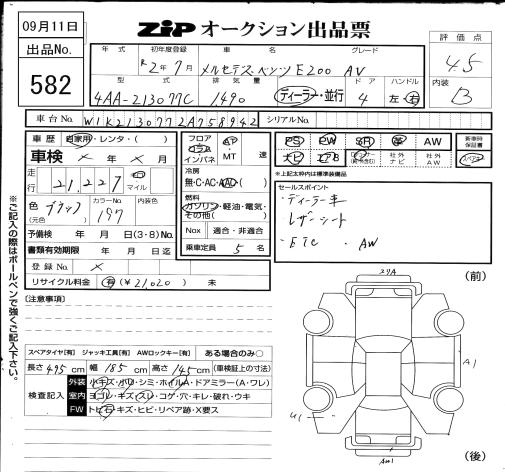 09月11日
ZIP オークション出品票
出品No.
582
評価点
4.5
内装
B
年式 初年度登録 車名 グレード
R2年7月 メルセデスベンツ E200 AV
型式 排気量 ドア ハンドル
4AA-213077C 1490 ディーラー・並行 4 左・右
車台No. W1K2130772A758942 シリアルNo.
車歴 自家用・レンタ・( )
車検 × 年 × 月
走行 21,227 キロ マイル
色(元色) ブラック カラーNo. 197 内装色
予備検 年 月 日(3・8) 日
書類有効期限 年 月 日迄
登録No. ×
リサイクル料金 有 (¥21,020) 未
フロア コラム インパネ AT MT 速
冷房 無・C・AC・AAC・( )
燃料 ガソリン・軽油・電気・その他( )
Nox 適合・非適合
乗車定員 5 名
PS PW SR 革 AW
ナビ エアB 社外ナビ 社外AW
新車時保証書
※上記太枠内は標準装備品
セールスポイント
・ディーラー車
・レザーシート
・ETC ・AW
[注意事項]
※ご記入の際はボールペンで強くご記入下さい。
スペアタイヤ[有] ジャッキ工具[有] AWロックキー[有] ある場合のみ○
長さ 495 cm 幅 185 cm 高さ 145 cm (車検証上の寸法)
検査記入
外装 小キズ・小凹・シミ・ホイルA・ドアミラー(A・ワレ)
室内 ヨゴレ・キズ・スレ・コゲ・穴・キレ・破れ・ウキ
FW トビ石・キズ・ヒビ・リペア跡・X要ス
(前)
A1
(後)